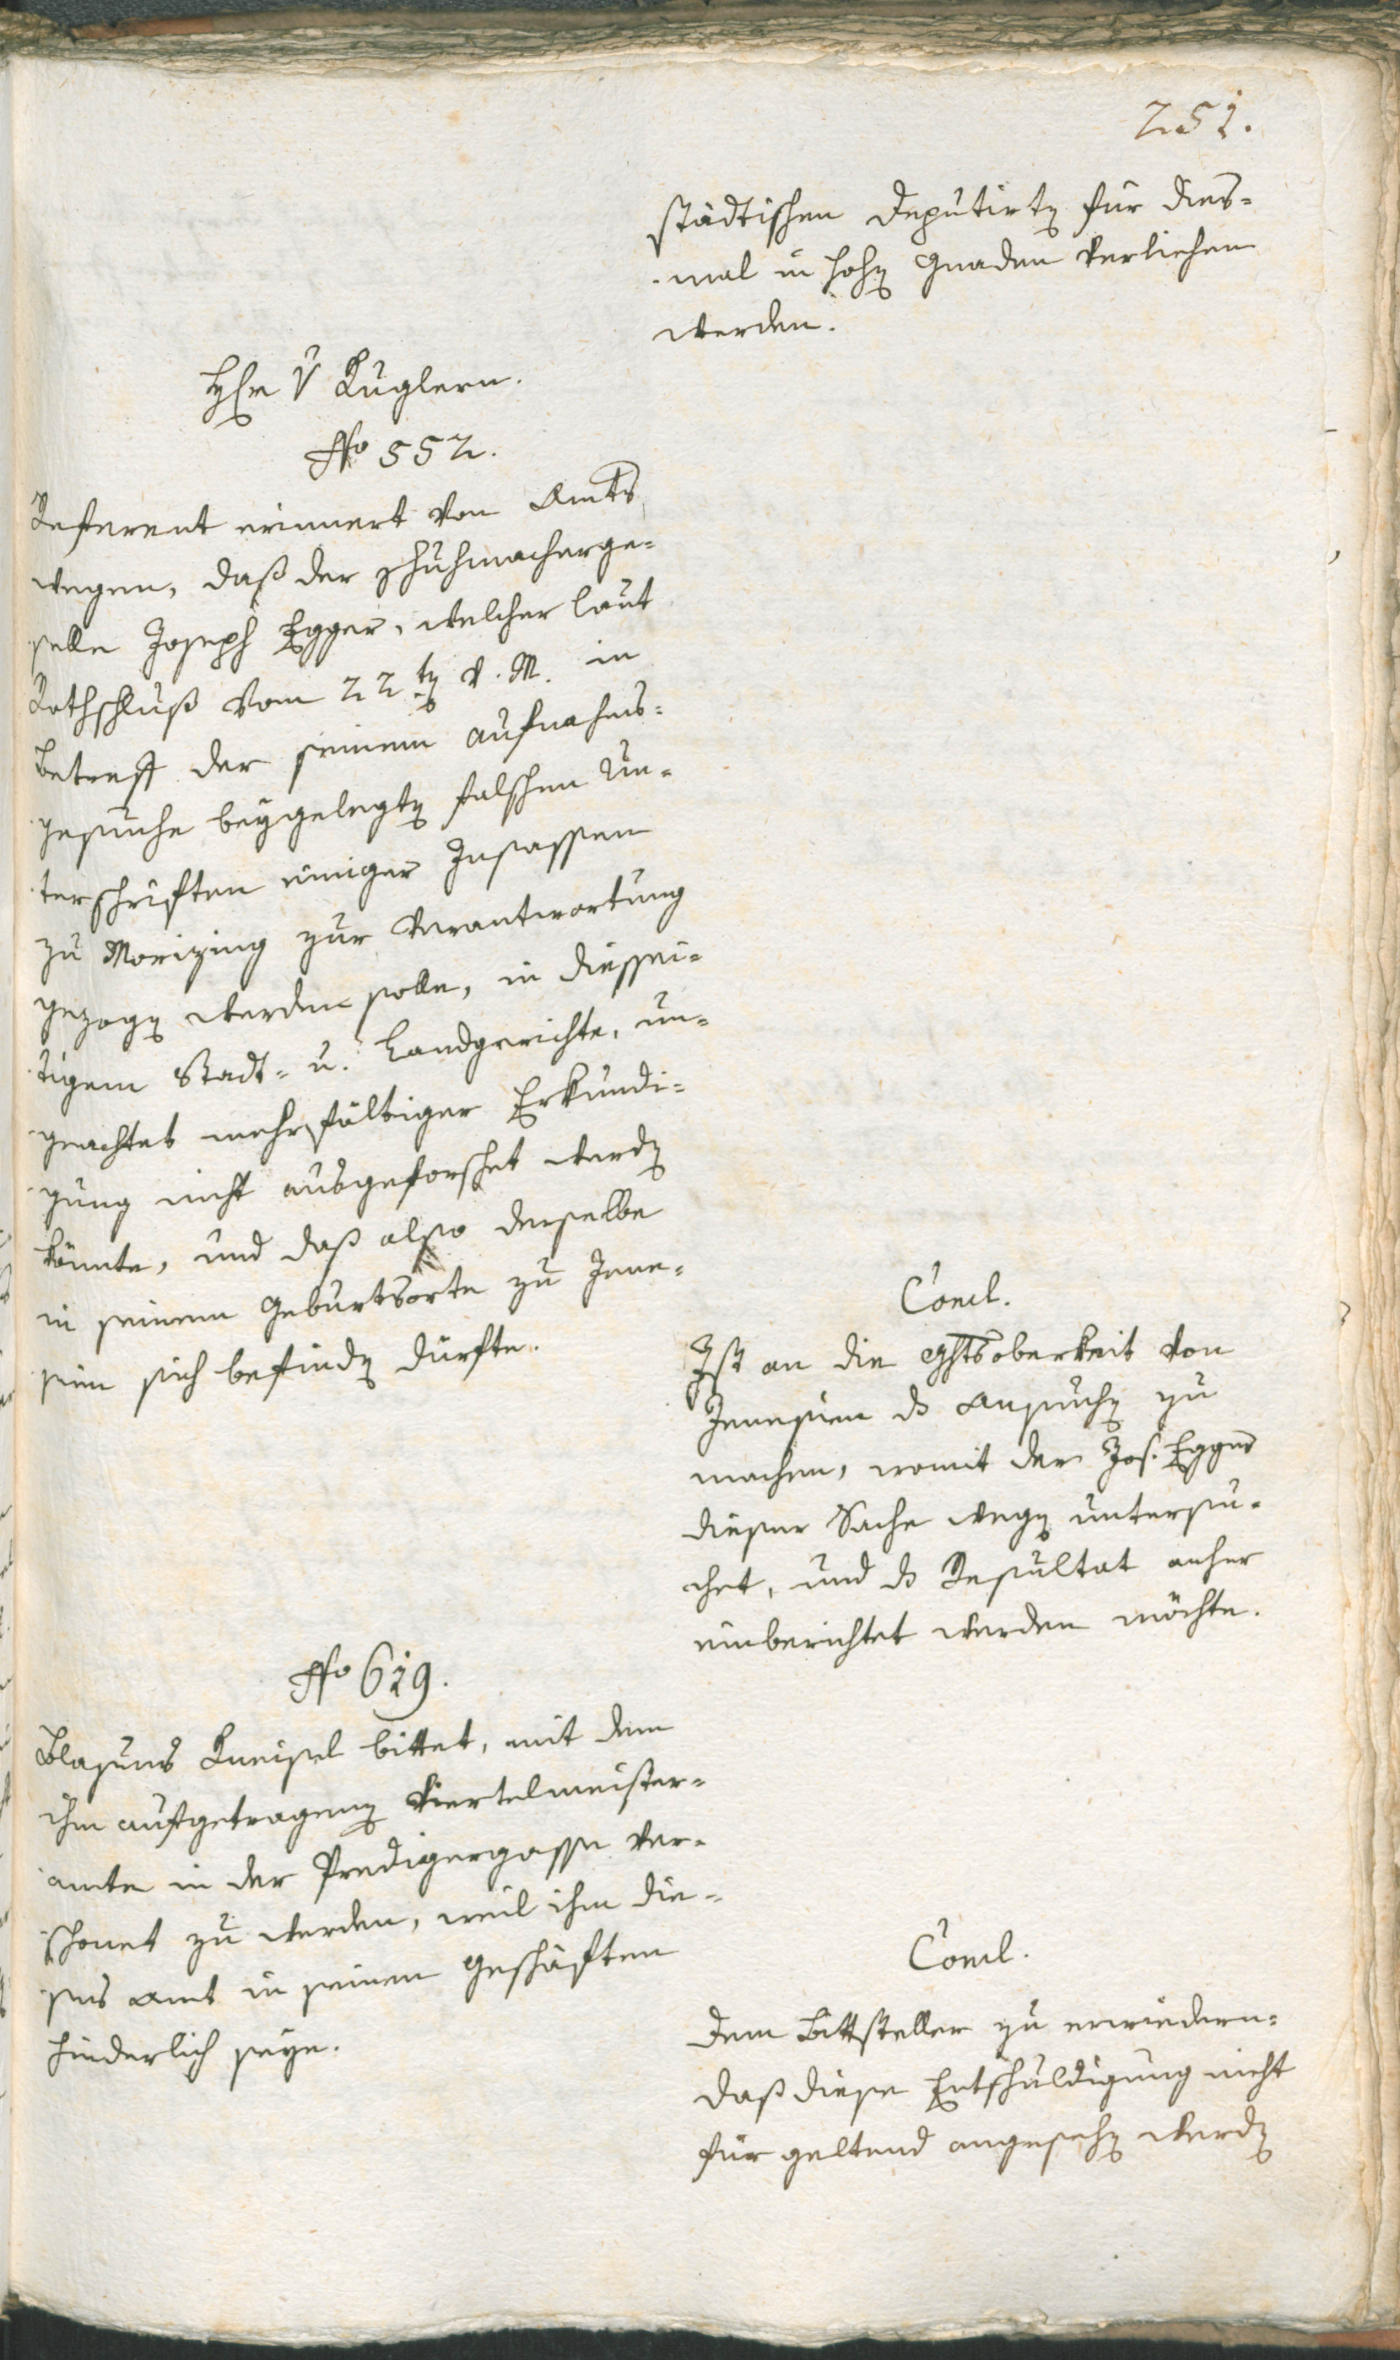 251.
städtischen Deputirten für dies-
mal in hohen Gnaden verliehen
werden.
Hr v Kuglern.
No 552.
Referent erinnert von Amts
wegen, daß der Schuhmacherge-
selle Joseph Egger, welcher laut
Rathschluß vom 22ten v. M. in
Betreff der seinem Aufnahms-
gesuche beygelegten falschen Un-
terschriften einiger Insassen
zu Morizing zur Verantwortung
gezogen werden solle, in diessei-
tigem Stadt- u. Landgerichte, un-
geachtet mehrfältiger Erkundi-
gung nicht ausgeforschet werden
könnte, und daß also derselbe
in seinem Geburtsorte zu Jene-
sien sich befinden dürfte.
Concl.
Ist an die Ghtsoberkeit von
Jenesien ds Ansuchen zu
machen, womit der Jos. Egger
dieser Sache wegen untersu-
chet, und ds Resultat anher
einberichtet werden möchte.
No 619.
Blasius Kneisel bittet, mit dem
ihm aufgetragenen Viertelmeister-
amte in der Predigergasse ver-
schonet zu werden, weil ihm die-
ses Amt in seinen Geschäften
hinderlich seye.
Concl.
Dem Bittsteller zu erwiedern:
daß diese Entschuldigung nicht
für geltend angesehen werden